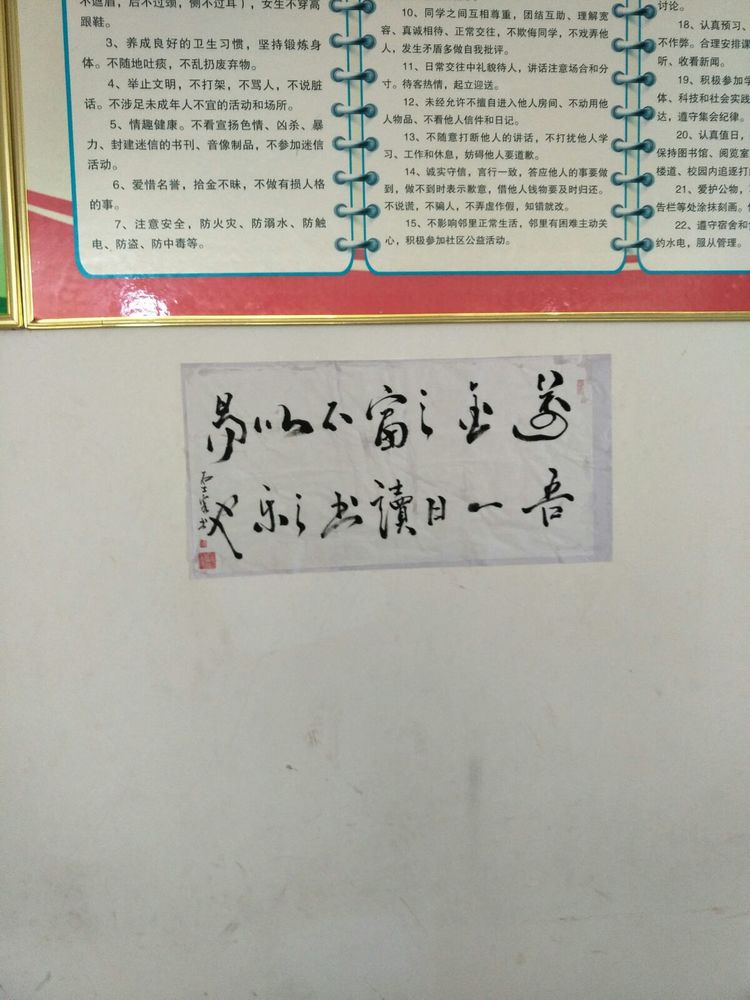 不遮眉，后不过颈，侧不过耳），女生不穿高
跟鞋。
3、养成良好的卫生习惯，坚持锻炼身
体。不随地吐痰，不乱扔废弃物。
4、举止文明，不打架，不骂人，不说脏
话。不涉足未成年人不宜的活动和场所。
5、情趣健康。不看宣扬色情、凶杀、暴
力、封建迷信的书刊、音像制品，不参加迷信
活动。
6、爱惜名誉，拾金不昧，不做有损人格
的事。
7、注意安全，防火灾、防溺水、防触
电、防盗、防中毒等。
10、同学之间互相尊重，团结互助、理解宽
容、真诚相待、正常交往，不欺侮同学，不戏弄他
人，发生矛盾多做自我批评。
11、日常交往中礼貌待人，讲话注意场合和分
寸。待客热情，起立迎送。
12、未经允许不擅自进入他人房间、不动用他
人物品、不看他人信件和日记。
13、不随意打断他人的讲话，不打扰他人学
习、工作和休息，妨碍他人要道歉。
14、诚实守信，言行一致，答应他人的事要做
到，做不到时表示歉意，借他人钱物要及时归还。
不说谎，不骗人，不弄虚作假，知错就改。
15、不影响邻里正常生活，邻里有困难主动关
心，积极参加社区公益活动。
讨论。
18、认真预习、
不作弊。合理安排课
听、收看新闻。
19、积极参加学
体、科技和社会实践
达，遵守集会纪律。
20、认真值日，
保持图书馆、阅览室
楼道、校园内追逐打
21、爱护公物，
告栏等处涂抹刻画。
22、遵守宿舍和
约水电，服从管理。
萬金之富不以易
吾一日讀书之乐